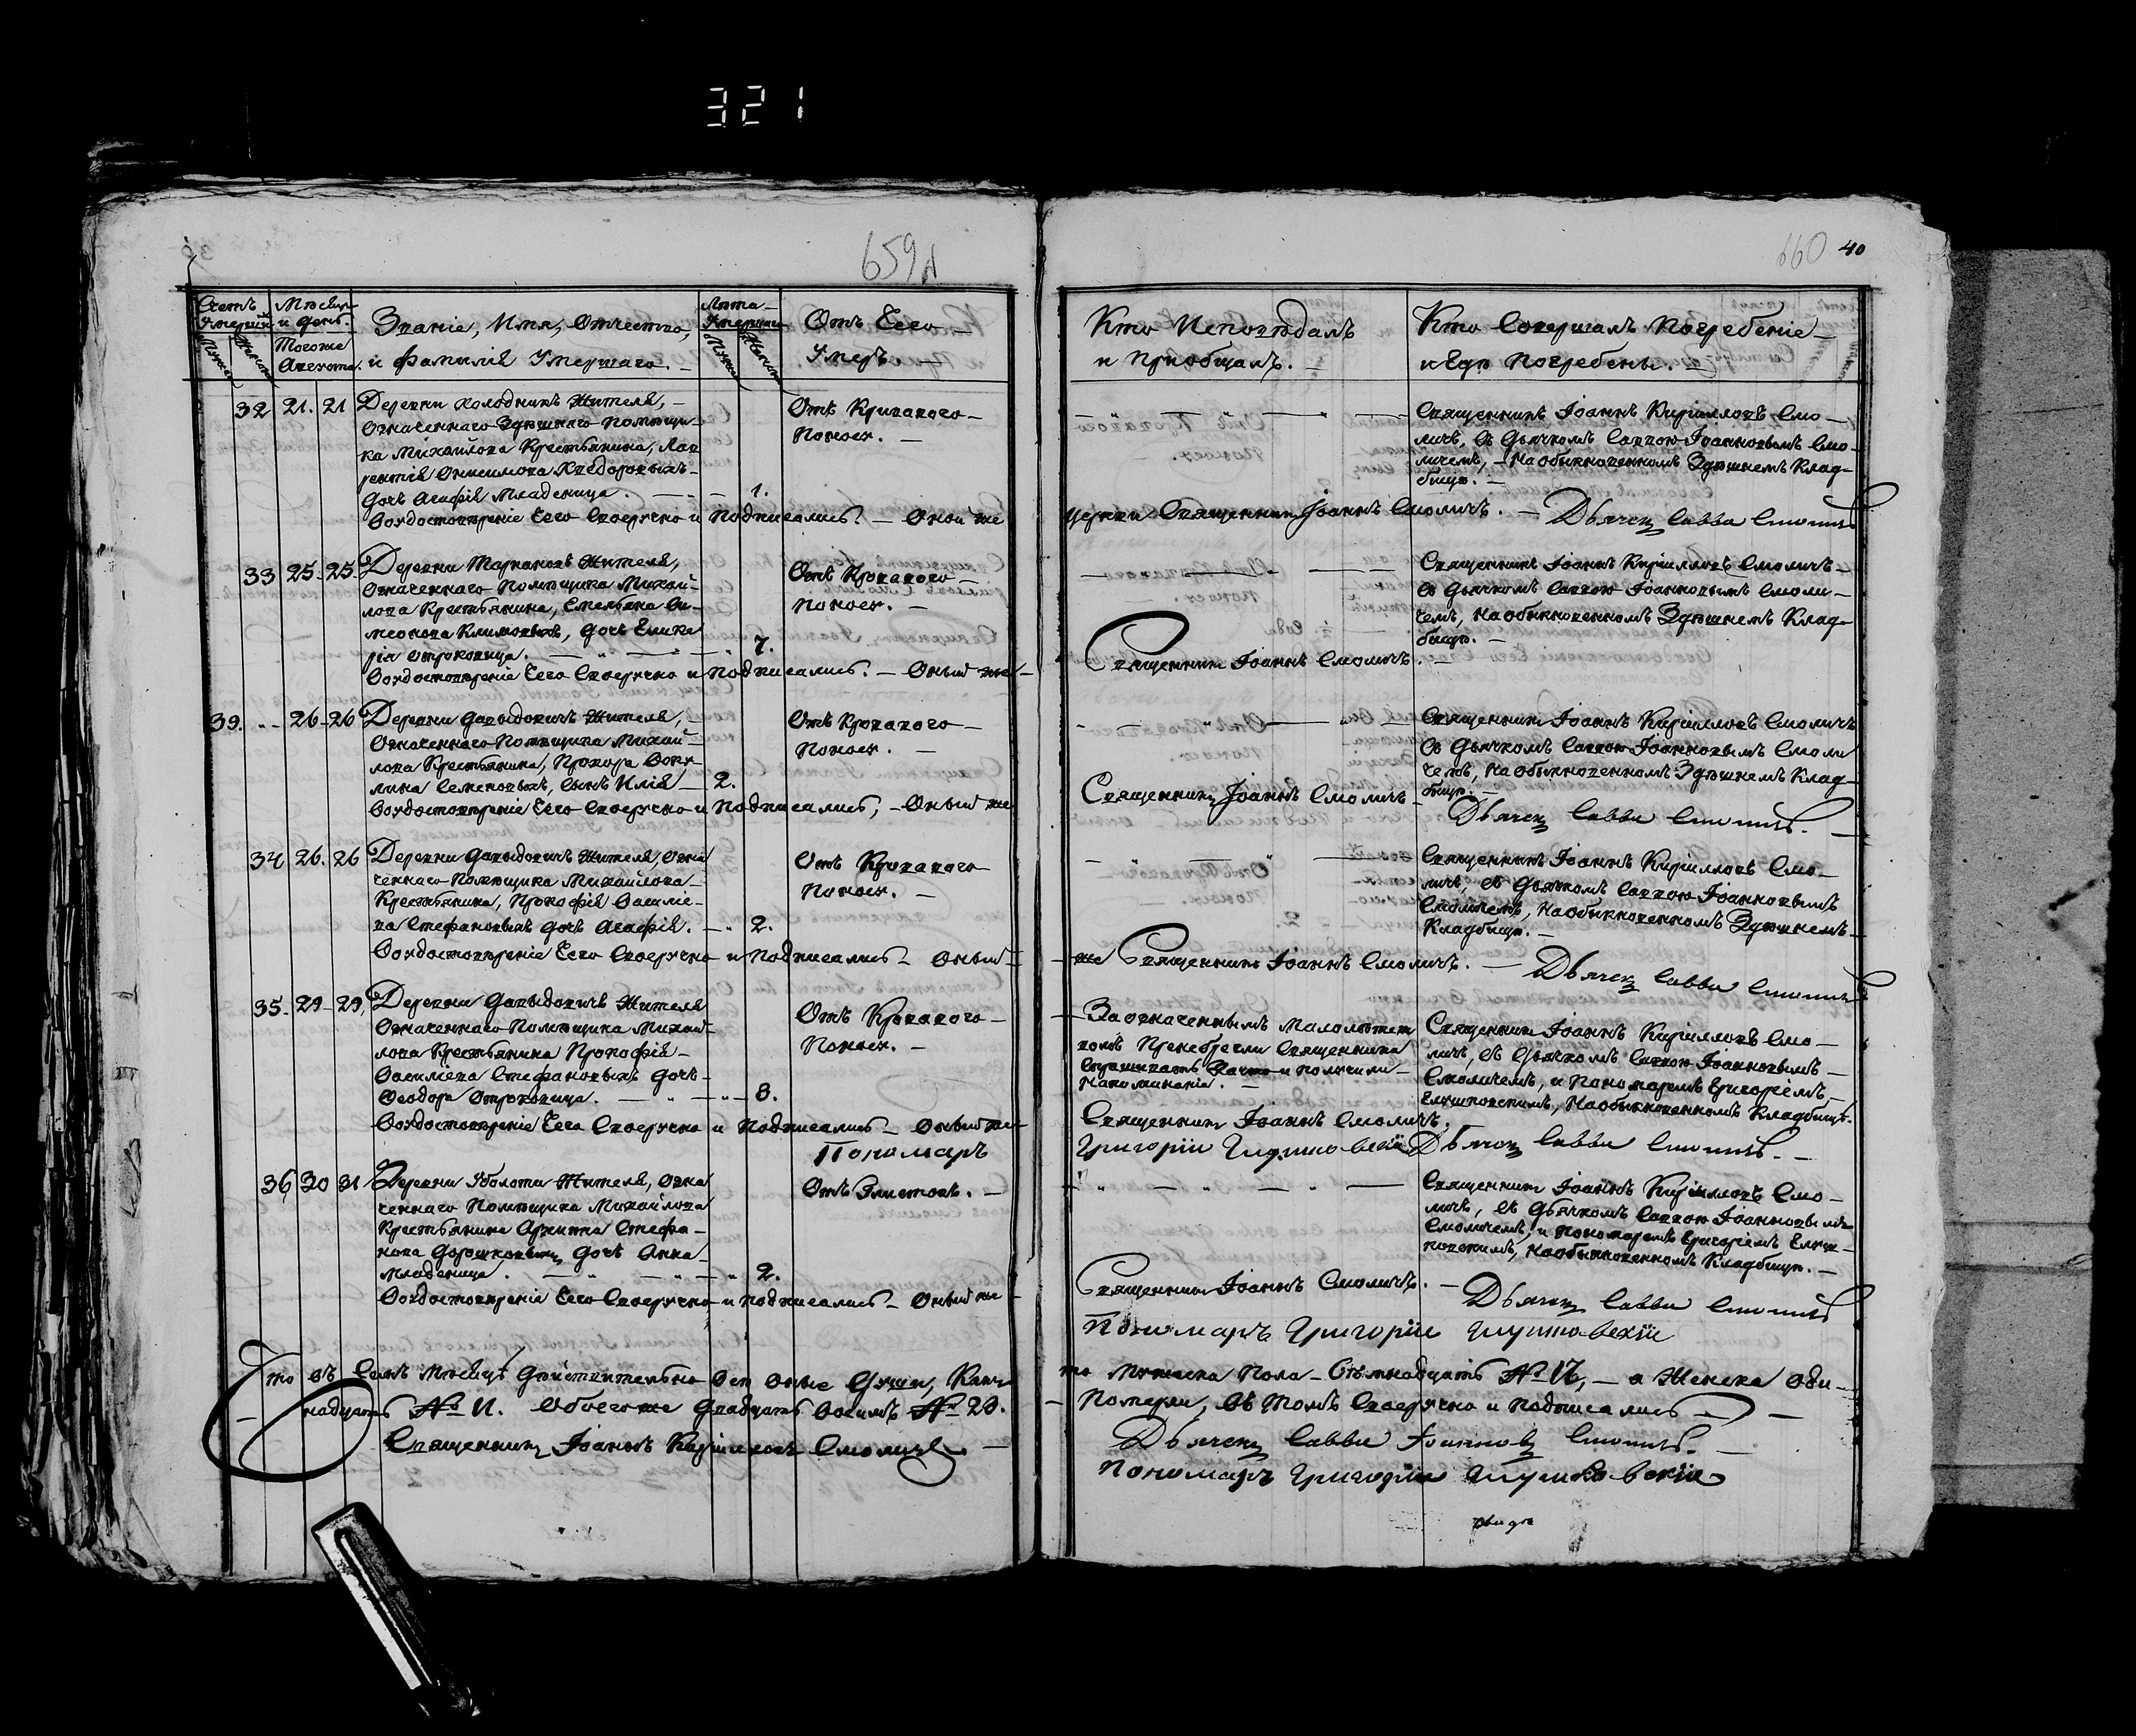 321
659
660 40
Счетъ Умершихъ
Мѣсяцъ и день.
Тогоже Августа.
Званіе, Имя, Отчество,
и Фамилія Умершаго. –
Лѣта Умершихъ
Отъ Чего
Умеръ.
Кто Исповѣдалъ
и Пріобщалъ. –
Кто Совершалъ Погребеніе
и Гдѣ Погребены. –
32 21. 21 Деревни Холодникъ Жителя, –
Означеннаго Здѣшняго Помѣщи-
ка Михайлова Крестьянина, Лав
рентія Онисимова Хведоровыхъ –
дочь Агафія Младеница. – 1.
Отъ Криваваго –
Поноса. –
Священникъ Іоаннъ Кирилловъ Смо –
личъ, съ Дьячкомъ Саввою Іоанновымъ Смо-
личемъ, – На обыкновенномъ Здѣшнемъ Клад-
бищѣ. –
Воудостовѣреніе Сего Своеручно и Подписались. – Оной же
церкви Священникъ Іоаннъ Смоличъ. – Дьячекъ Савва Смоличъ
33 25 – 25. Деревни Жителя,
Означеннаго Помѣщика Михай-
лова Крестьянина, Емельяна Си-
меонова Климовыхъ, дочь Глике
рія Отроковица. – 7.
Отъ Кроваваго –
Поноса. –
Священникъ Іоаннъ Кирилловъ Смоличъ –
Съ Дьячкомъ Саввою Іоанновымъ Смоли –
чемъ, На обыкновенномъ Здѣшнемъ Клад-
бищѣ. –
Воудостовѣреніе Сего Своеручно и Подписались. – Оный же –
Священникъ Іоаннъ Смоличъ. –
39. 26 – 26 Деревни Давыдовичъ Жителя, –
Означеннаго Помѣщика Михай –
лова Крестьянина, Прохора
Семеновыхъ, Сынъ Илія – 2.
Отъ Кроваваго –
Поноса. –
Священникъ Іоаннъ Кирилловъ Смоличъ
Съ Дьячкомъ Саввою Іоанновымъ Смоли
чемъ, На обыкновенномъ Здѣшнемъ Клад –
бищѣ. –
Воудостовѣреніе Сего Своеручно и Подписались, – Оный же
Священникъ Іоаннъ Смоличъ –
Дьячекъ Савва Смоличъ. –
34 26. 26 Деревни Давыдовичъ Жителя, Озна
ченнаго Помѣщика Михайлова –
Крестьянина, Прокофія Василіе-
ва Стефановыхъ дочь Агафія. – 2.
Отъ Кроваваго
Поноса. –
Священникъ Іоаннъ Кирилловъ Смо –
личъ, съ Дьячкомъ Саввою Іоанновымъ
Смоличемъ, На обыкновенномъ Здѣшнемъ –
Кладбищѣ. –
Воудостовѣреніе Сего Своеручно и Подписались – Оный –
же Священникъ Іоаннъ Смоличъ. – Дьячекъ Савва Смоличъ
35 – 29 – 29, Деревни Давыдовичъ Жителя
Означеннаго Помѣщика Михай-
лова Крестьянина Прокофія –
Василіева Стефановыхъ дочь –
Феодора Отроковица. – 8.
Отъ Кроваваго –
Поноса. –
Заозначеннымъ Малолѣтст
вомъ Пренебрегли Священника
и получили –
Напоминаніе. –
Священникъ Іоаннъ Кирилловъ Смо –
личъ, съ Дьячкомъ Саввою Іоанновымъ –
Смоличемъ, и Пономаремъ Григоріемъ –
Глушковскимъ, На обыкновенномъ Кладбищѣ.
Воудостовѣреніе Сего Своеручно и Подписались – Оный же –
Священникъ Іоаннъ Смоличъ.
Пономаръ Григорій Глушковскій Дьячекъ Савва Смоличъ. –
36 30 31 Деревни Уболоти Жителя, Озна
ченнаго Помѣщика Михайлова
Крестьянина Архипа Стефа –
нова Дорошковыхъ дочь Анна –
Младеница. – 2.
Отъ Глистовъ. –
Священникъ Іоаннъ Кирилловъ Смо –
личъ, съ Дьячкомъ Саввою Іоанновымъ
Смоличемъ, и Пономаремъ Григоріемъ Глуш –
ковскимъ, На обыкновенномъ Кладбищѣ. –
Воудостовѣреніе Сего Своеручно и Подписались – Оный же –
Священникъ Іоаннъ Смоличъ. – Дьячекъ Савва Смоличъ
Пономаръ Григорій Глушковскій
Что въ Семъ Мѣсяцѣ Дѣйствительно Всѣ оные Души, Какъ
то Мужеска Пола – Съмнадцать № 17, – а Женска Оди –
– надцать № 11. Обоегоже Двадцать Восемъ № 28.
– Померли, въ Томъ Своеручно и Подписались –
Священникъ Іоаннъ Кирилловъ Смоличъ –
Дьячекъ Савва Іоанновъ Смоличъ. –
Пономаръ Григорій Глушковскій